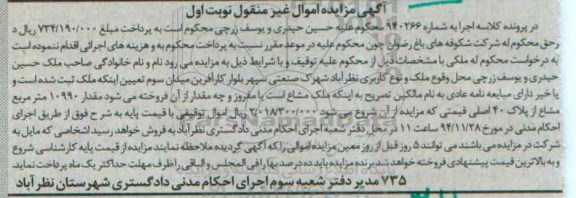 آگهی مزایده اموال غیر منقول نوبت اول
در پرونده کلاسه اجرا به شماره ۹۴۰۲۶۶ محکوم علیه حسین حیدری و یوسف زرچی محکوم است به پرداخت مبلغ ۷۳۴/۱۹۰/۰۰۰ ریال در
حق محکوم له شرکت شکوفه های باغ رضوان چون محکوم علیه در موعد مقرر نسبت به پرداخت محکوم به و هزینه های اجرائی اقدام ننموده است
به درخواست محکوم له ملکی با مشخصات ذیل از محکوم علیه توقیف و با شرایط ذیل به مزایده می رود نام و نام خانوادگی صاحب ملک حسین
حیدری و یوسف زرچی محل وقوع ملک و نوع کاربری نظرآباد شهرک صنعتی سپهر بلوار کارآفرین میدان سوم تعیین اینکه ملک ثبت شده است و
یا خیر دارای مبایعه نامه عادی به نام مالکین تصریح به اینکه ملک مشاع است یا مفروز و چه مقدار از آن فروخته می شود مقدار ۱۰۹۹۰ متر مربع
مشاع از پلاک ۴۰ اصلی قیمتی که مزایده از آن شروع می شود ریال اموال توقیفی با قیمت پایه به شرح فوق از طریق اجرای
احکام مدنی در مورخ ۹۴/۱۱/۲۸ ساعت ۱۱ در محل دفتر شعبه اجرای احکام مدنی دادگستری نظرآباد به فروش خواهد رسید اشخاصی که مایل به
شرکت در مزایده می باشند می توانند ۵ روز قبل از روز معین مزایده اموالی را که آگهی گردیده ملاحظه نمایند مزایده از قیمت پایه کارشناسی شروع
و به بالاترین قیمت پیشنهادی فروخته خواهد شد برنده مزایده باید ده درصد بها را فی المجلس و الباقی را ظرف مهلت حداکثر یک ماه پرداخت نماید.
۷۳۵ مدیر دفتر شعبه سوم اجرای احکام مدنی دادگستری شهرستان نظرآباد